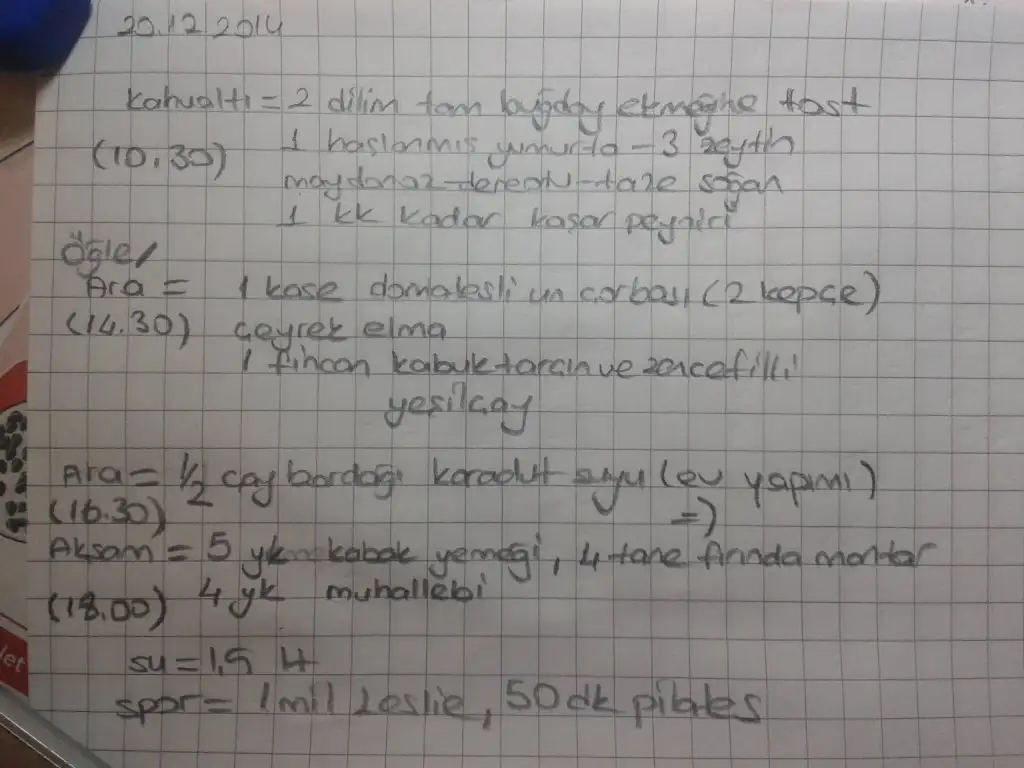 20.12.2014
Kahvaltı = 2 dilim tam buğday ekmeğine tost
(10.30) 1 haşlanmış yumurta - 3 zeytin
maydanoz - dereotu - taze soğan
1 kk kadar kaşar peyniri
Öğle/
Ara = 1 kase domatesli un çorbası (2 kepçe)
(14.30) çeyrek elma
1 fincan kabuk tarçın ve zencefilli
yeşilçay
Ara = 1/2 çay bardağı karadut suyu (ev yapımı)
(16.30) =)
Akşam = 5 yk kabak yemeği, 4 tane fırında mantar
(18.00) 4 yk muhallebi
su = 1,5 lt
spor = 1 mil Leslie, 50 dk pilates
let